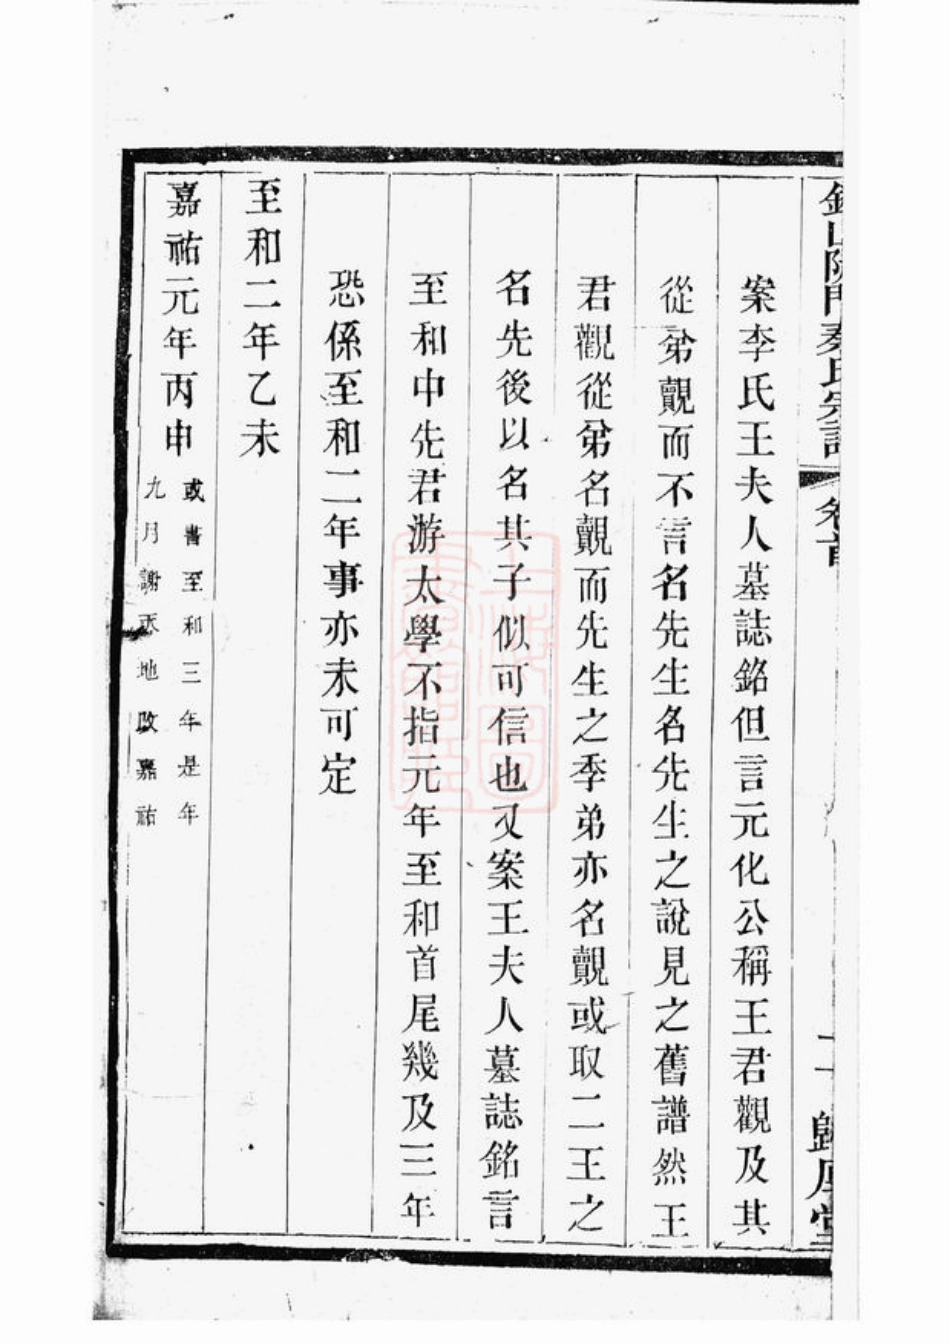 錫山陡門秦氏宗譜 卷首
歸厚堂
案李氏王夫人墓誌銘但言元化公稱王君觀及其
從弟覿而不言名先生名先生之說見之舊譜然王
君觀從弟名覿而先生之季弟亦名覿或取二王之
名先後以名其子似可信也又案王夫人墓誌銘言
至和中先君游太學不指元年至和首尾幾及三年
恐係至和二年事亦未可定
至和二年乙未
嘉祐元年丙申
或書至和三年是年
九月謝天地改嘉祐